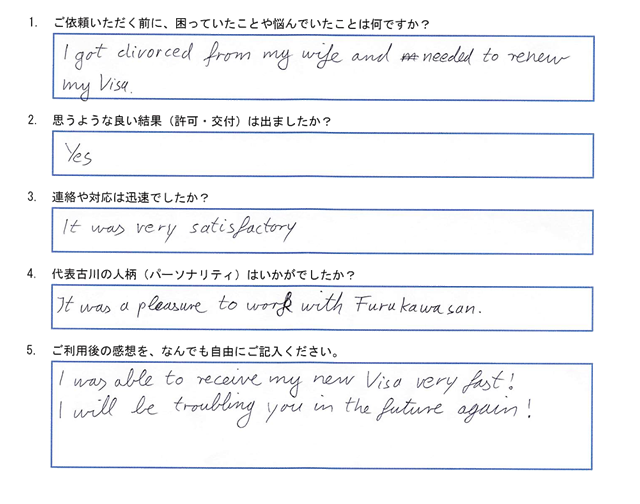 1. ご依頼いただく前に、困っていたことや悩んでいたことは何ですか？
I got divorced from my wife and needed to renew
my Visa.
2. 思うような良い結果（許可・交付）は出ましたか？
Yes
3. 連絡や対応は迅速でしたか？
It was very satisfactory
4. 代表古川の人柄（パーソナリティ）はいかがでしたか？
It was a pleasure to work with Furukawa san.
5. ご利用後の感想を、なんでも自由にご記入ください。
I was able to receive my new Visa very fast!
I will be troubling you in the future again!